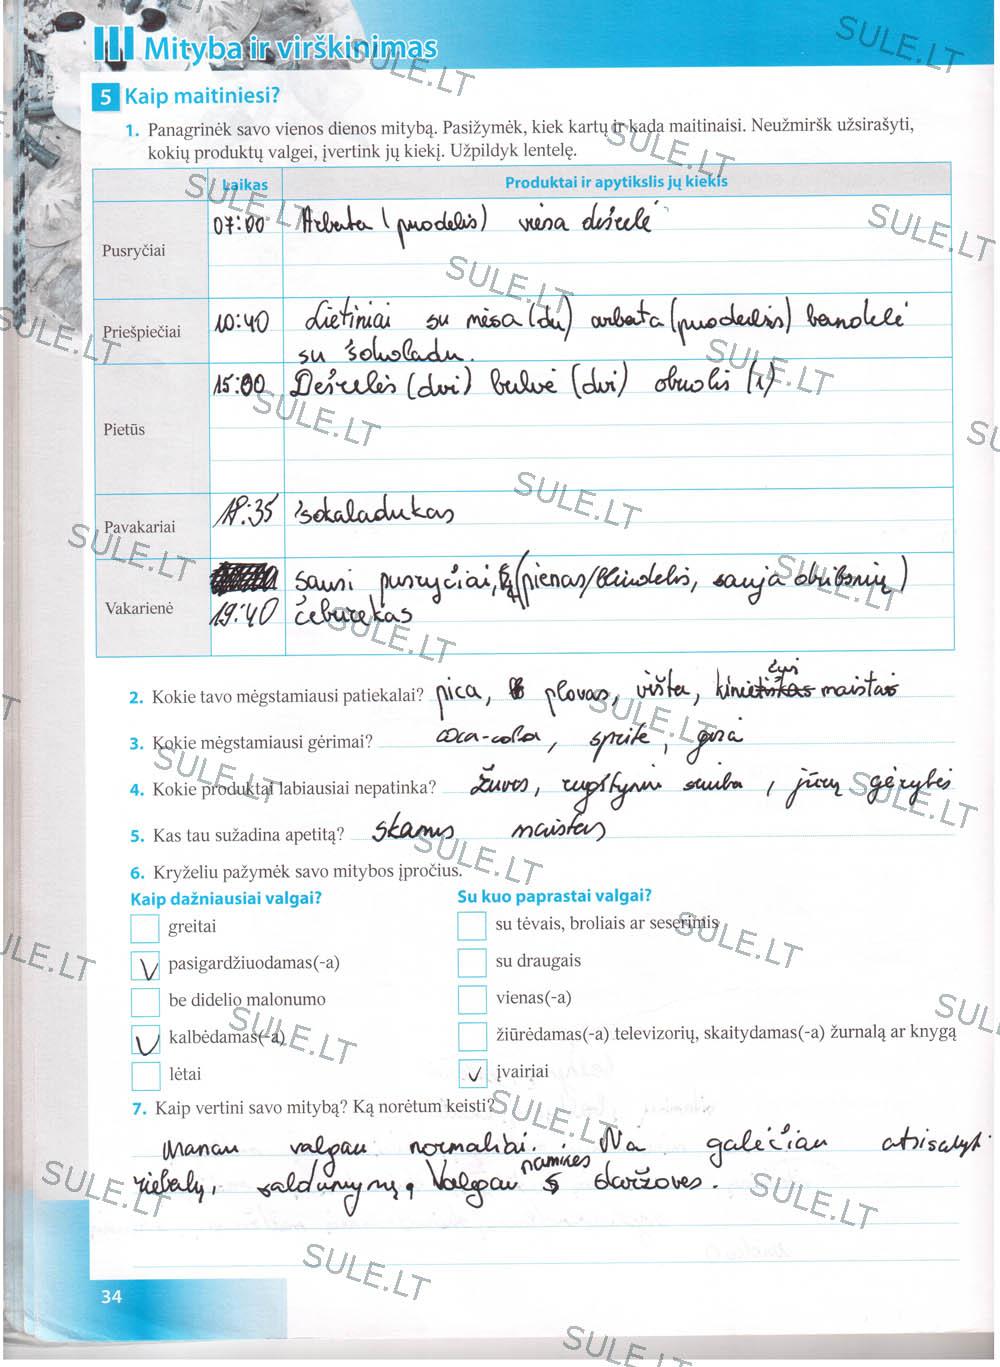 III Mityba ir virškinimas
5 Kaip maitiniesi?
1. Panagrinėk savo vienos dienos mitybą. Pasižymėk, kiek kartų ir kada maitinaisi. Neužmiršk užsirašyti,
kokių produktų valgei, įvertink jų kiekį. Užpildyk lentelę.
Laikas Produktai ir apytikslis jų kiekis
Pusryčiai 07:00 Arbata (puodelis) viena dešrelė
Priešpiečiai 10:40 Lietiniai su mėsa (du) arbata (puodelis) bandelė
su šokoladu.
Pietūs 15:00 Dešrelės (dvi) bulvė (dvi) obuolis (1)
Pavakariai 18:35 šokaladukas
Vakarienė sausi pusryčiai, (pienas/bliudelis, sauja dribsnių)
19:40 čeburekas
2. Kokie tavo mėgstamiausi patiekalai? pica, plovas, višta, kiniečių maistas
3. Kokie mėgstamiausi gėrimai? coca-cola, sprite, gira
4. Kokie produktai labiausiai nepatinka? Žuvos, rugštynių sriuba, jūrų gėrybės
5. Kas tau sužadina apetitą? skanus maistas
6. Kryželiu pažymėk savo mitybos įpročius.
Kaip dažniausiai valgai? Su kuo paprastai valgai?
greitai su tėvais, broliais ar seserimis
V pasigardžiuodamas(-a) su draugais
be didelio malonumo vienas(-a)
V kalbėdamas(-a) žiūrėdamas(-a) televizorių, skaitydamas(-a) žurnalą ar knygą
lėtai V įvairiai
7. Kaip vertini savo mitybą? Ką norėtum keisti?
Manau valgau normaliai. Na galėčiau atsisakyt
riebalų, saldumynų, Valgau namines daržoves.
34
SULE.LT